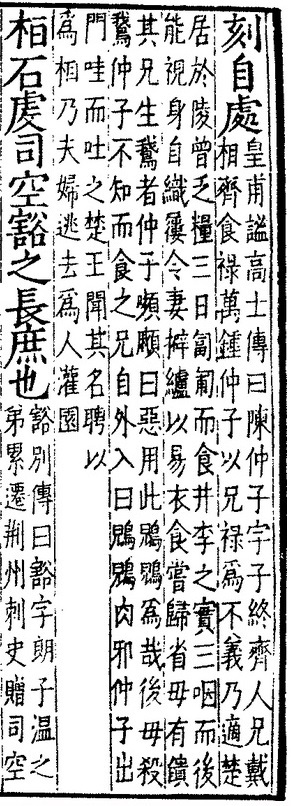 刻自處
皇甫謐高士傳曰陳仲子字子終齊人兄戴
相齊食祿萬鍾仲子以兄祿爲不義乃適楚
居於陵曾乏糧三日匐匍而食井李之實三咽而後
能視身自織屨令妻擗纑以易衣食嘗歸省母有饋
其兄生鵝者仲子嚬顣曰惡用此鶂鶂爲哉後母殺
鵝仲子不知而食之兄自外入曰鶂鶂肉邪仲子出
門哇而吐之楚王聞其名聘以
爲相乃夫婦逃去爲人灌園
桓石虔司空豁之長庶也
豁別傳曰豁字朗子溫之
弟累遷荆州刺史贈司空